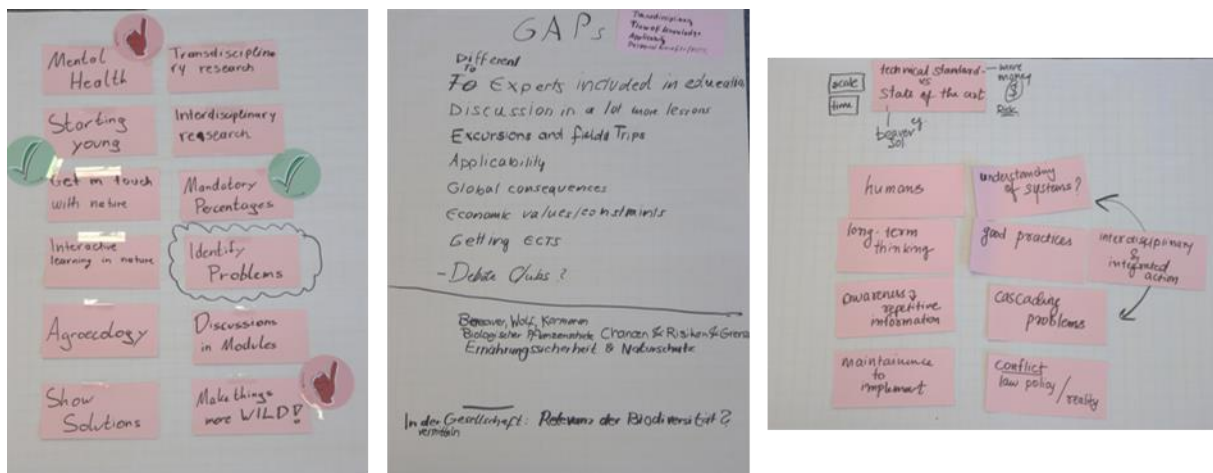 Mental
Health
Transdiscipline
ry research
Starting
young
Interdisciplinary
research
Get in touch
with nature
Mandatory
Percentages
Interactive
learning in nature
Identify
Problems
Agroecology
Discussions
in Modules
Show
Solutions
Make things
more WILD!
GAPs
Transdisciplinary
Applicability
Different
To
To Experts included in educatio
Discussion in a lot more lessons
Excursions and fields Trips
Applicability
Global consequences
Economic values/constraints
Getting ECTS
- Debate Clubs?
Wolf,
Biologischer Chancen & Risiken &
Ernährungssicherheit & Naturschutz
In der Gesellschaft: Relevanz der Biodiversität?
vermitteln
scale
time
technical standard
vs
state of the art
more
money
$
eg
beaver
humans
understanding
of systems?
long-term
thinking
good practices
interdisciplinary
&
integrated
action
awareness &
repetitive
information
cascading
problems
maintainence
to
implement
conflict
law policy/
reality